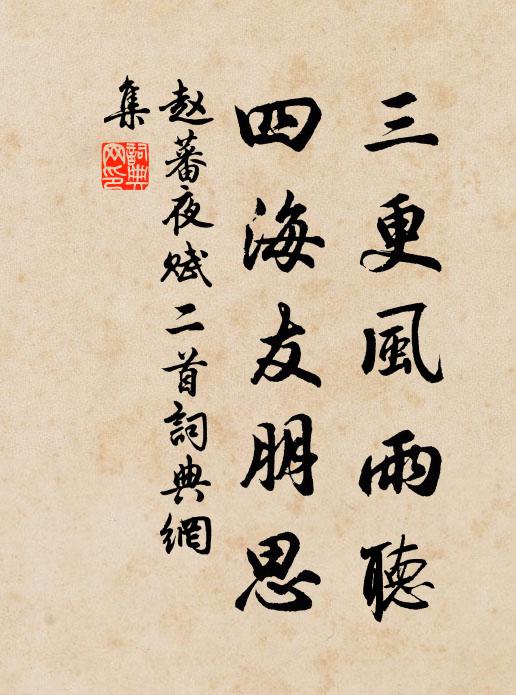 三更風雨聽
四海友朋思
赵蕃夜赋二首詞典網
集
詞典
网印